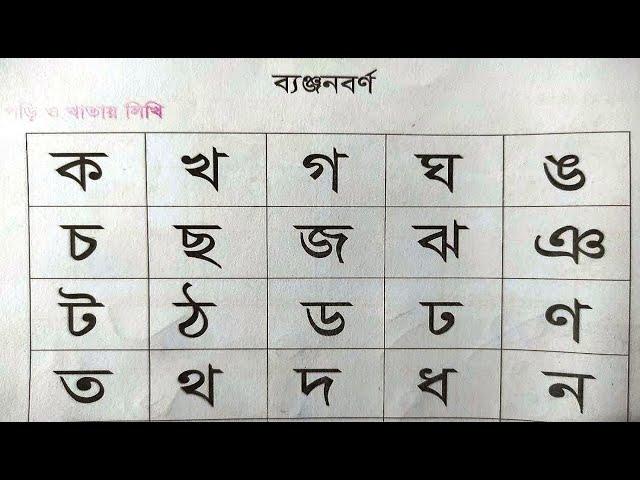 ব্যঞ্জনবর্ণ
পড়ি ও খাতায় লিখি
ক খ গ ঘ ঙ
চ ছ জ ঝ ঞ
ট ঠ ড ঢ ণ
ত থ দ ধ ন